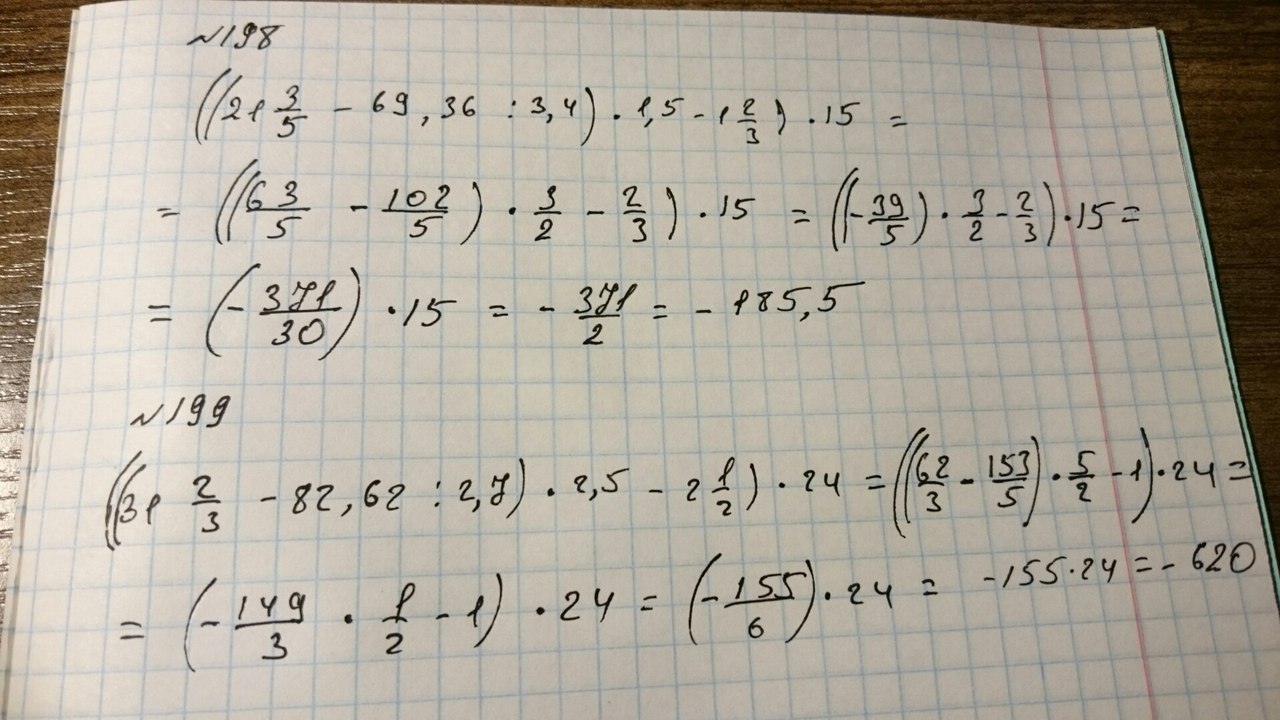 №198
((21 3/5 - 69,36 : 3,4) · 1,5 - 1 2/3) · 15 =
= ((63/5 - 102/5) · 3/2 - 2/3) · 15 = ((-39/5) · 3/2 - 2/3) · 15 =
= (-371/30) · 15 = -371/2 = -185,5
№199
((31 2/3 - 82,62 : 2,7) · 2,5 - 2 1/2) · 24 = ((62/3 - 153/5) · 5/2 - 1) · 24 =
= (-149/3 · 1/2 - 1) · 24 = (-155/6) · 24 = -155·24 = -620